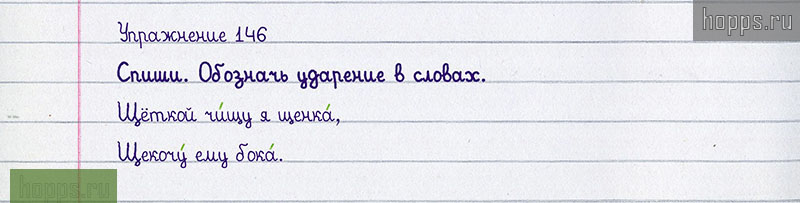 hopps.ru
Упражнение 146
Спиши. Обозначь ударение в словах.
Щёткой чи́щу я щенка́,
Щекочу́ ему бока́.
hopps.ru